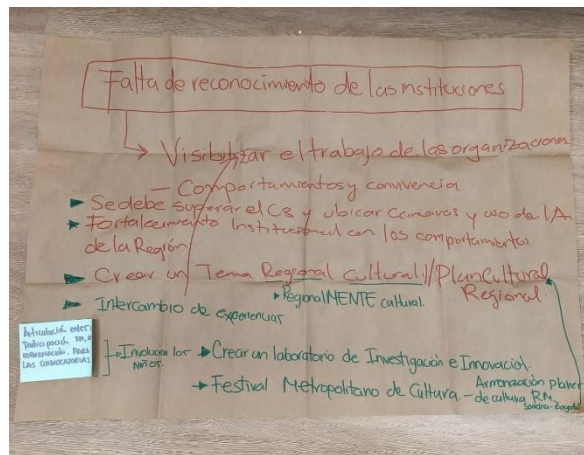 Falta de reconocimiento de las instituciones
Visibilizar el trabajo de las organizaciones
- Comportamientos y convivencia
Se debe superar el CS y ubicar Camaras y uso de IA
Fortalecimiento Institucional con los comportamientos
de la Región
Crear un Tema Regional Cultural // Plan Cultural
Regional.
RegionalMENTE cultural.
Intercambio de experiencias
Articulación
Participación
GOBERNACIÓN. PARA
LAS CONVOCATORIAS
Involucra los
niños.
Crear un laboratorio de Investigación e Innovación.
Festival Metropolitano de Cultura. - Armonización planes
de cultura RM